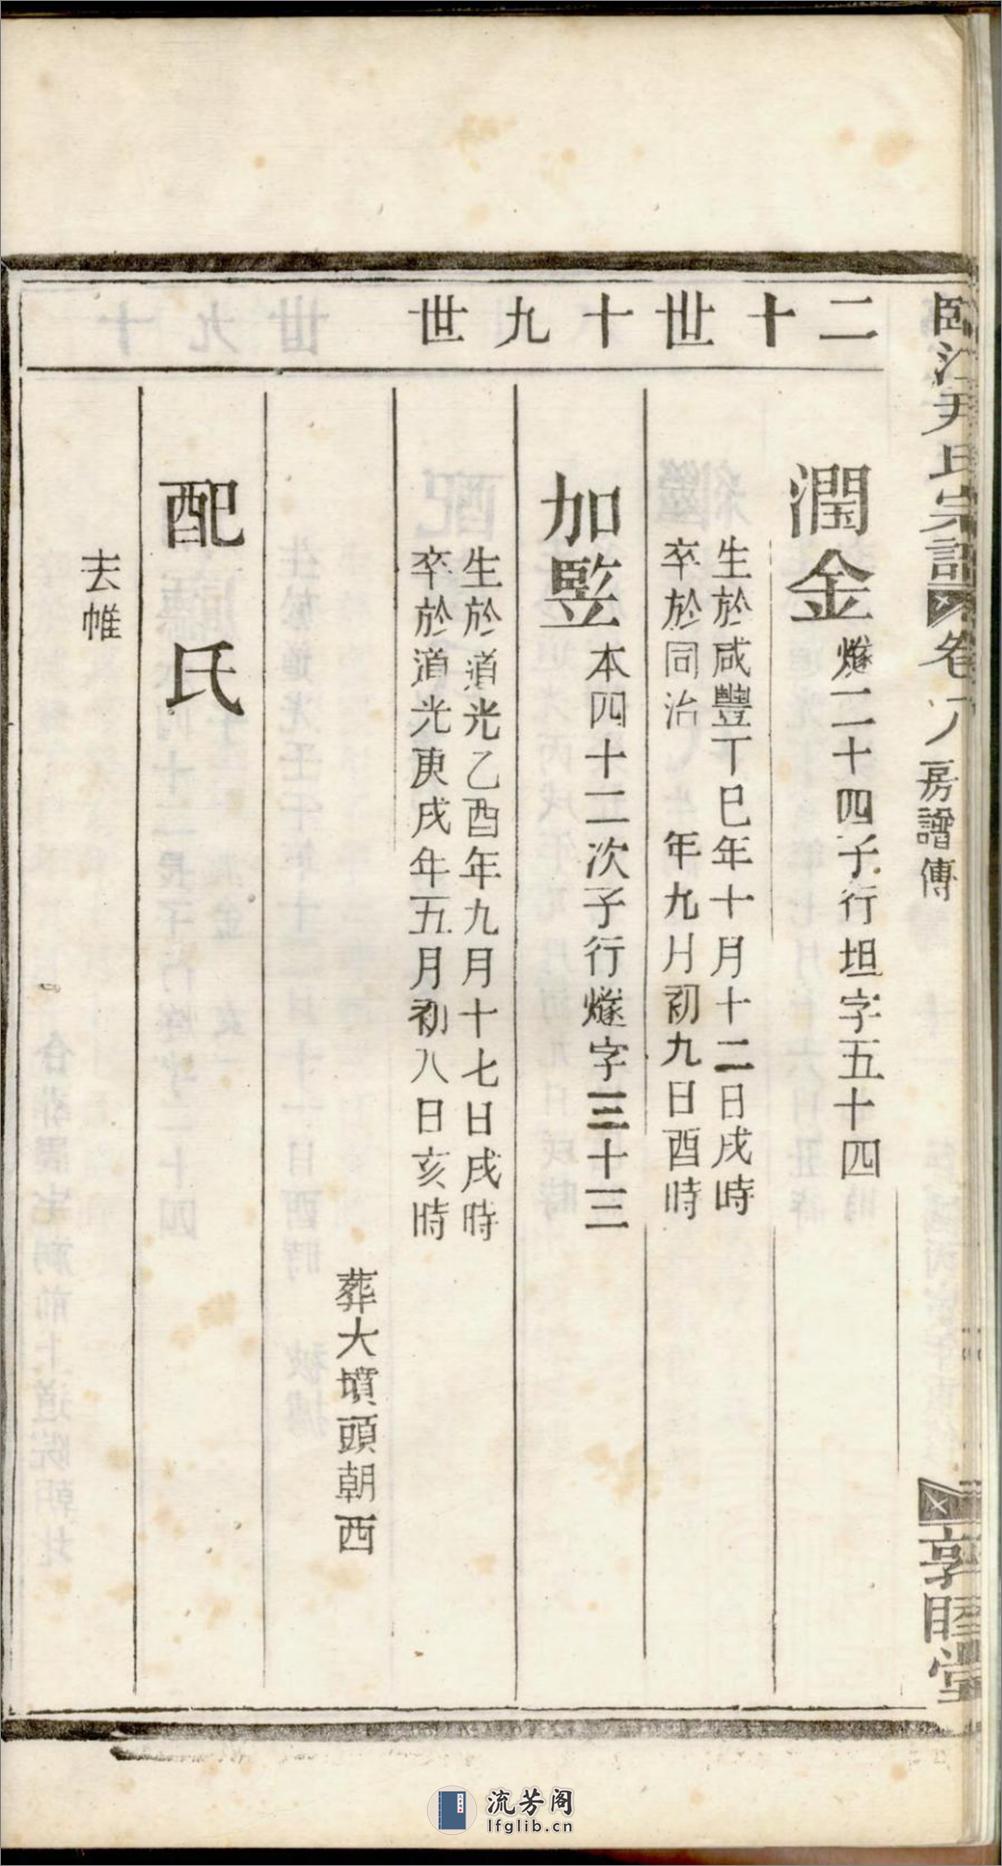 臨江尹氏宗譜 卷八 房譜傳
敦睦堂
二十世
十九世
潤金
燧二十四子行坦字五十四
生於咸豐丁巳年十月十二日戌時
卒於同治 年九月初九日酉時
加監
本四十二次子行燧字三十三
生於道光乙酉年九月十七日戌時
卒於道光庚戌年五月初八日亥時
葬大墳頭朝西
配氏
去帷
流芳阁
lfglib.cn